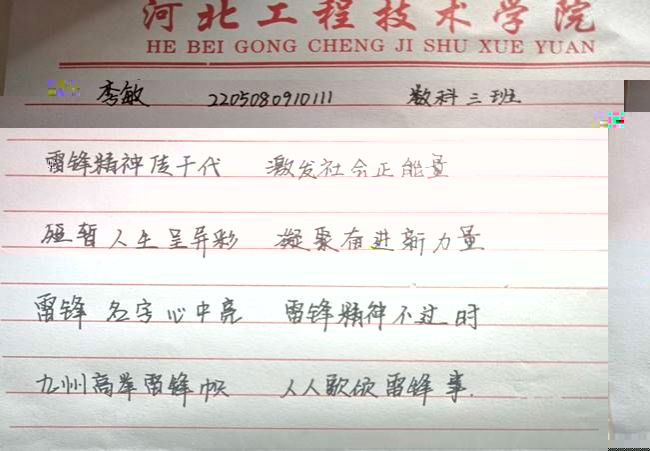 河北工程技术学院
HE BEI GONG CHENG JI SHU XUE YUAN
李敏 2205080910111 数科三班
雷锋精神传千代 激发社会正能量
短暂人生呈异彩 凝聚奋进新力量
雷锋名字心中亮 雷锋精神不过时
九州高举雷锋帜 人人歌颂雷锋事.